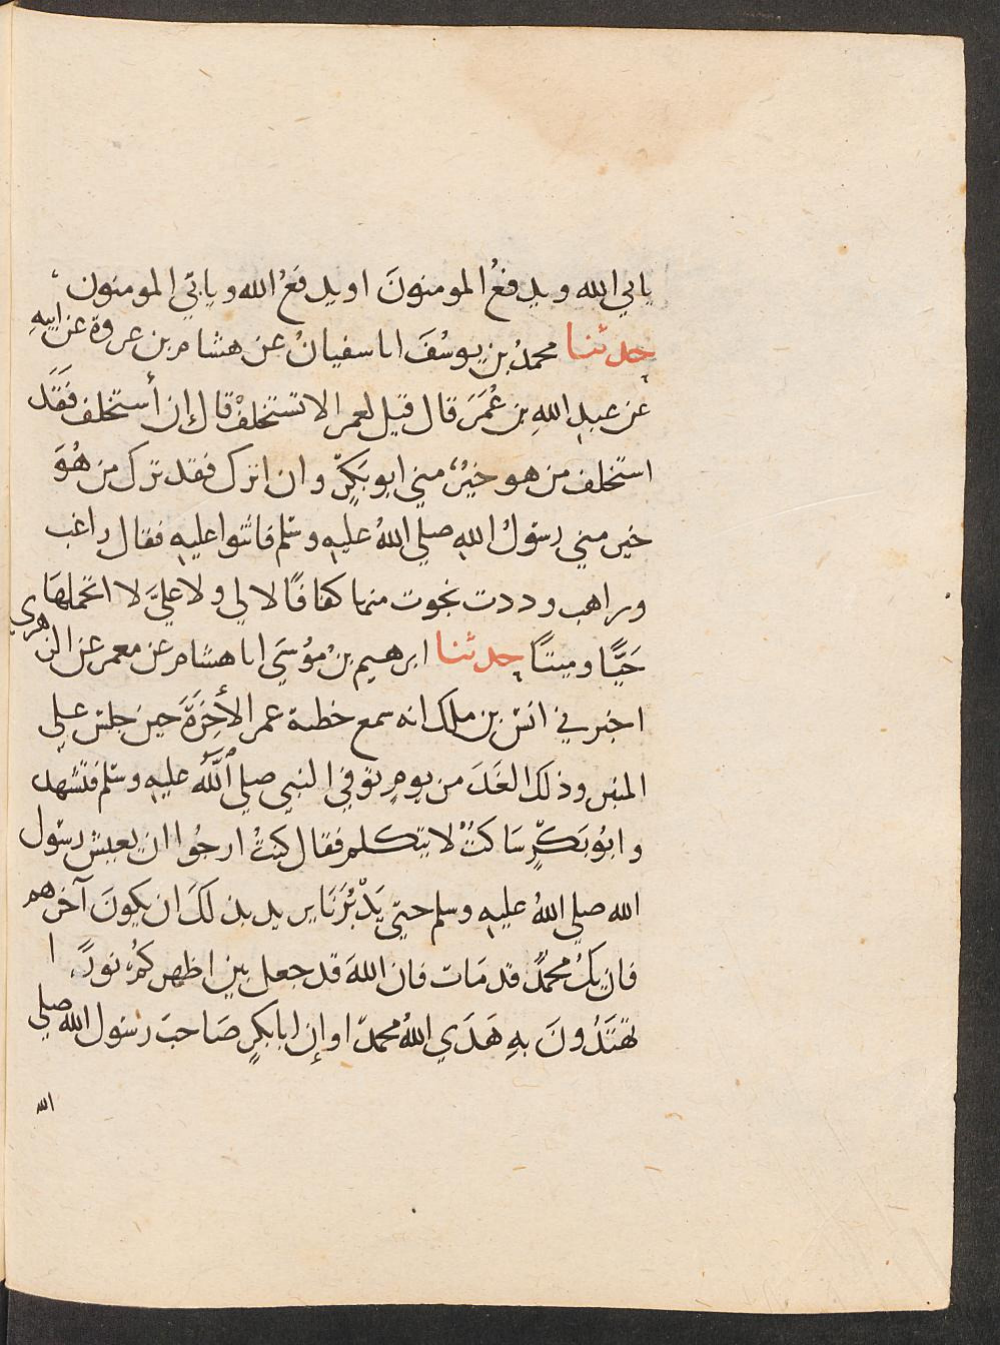 يابي الله ويدفعُ المومنونَ او يدفعُ الله ويابي المومنون
حدثنا محمدُ بن يوسُفَ انا سفيانُ عن هشام بن عروة عن ابيهِ
عن عبدِ اللهِ بن عُمَرَ قال قيل لعمر الا تستخلفْ قال إن أستخلف فَقَد
استخلف من هو خيرٌ مني ابو بَكرٍ وان اترك فقد ترك من هُوَ
خير مني رسُولُ اللهِ صلي اللهُ عليهِ وسلم فاثنوا عليهِ فقال راغب
وراهب وددت نجوت منها كفافًا لا لي ولا عليَّ لا اتحملهَا
حَيًّا وميتًا حدثنا ابرهيم بنُ مُوسَي انا هشام عن معمر عن الزهري
اخبرني انس بن ملك انه سمع خطبة عمر الأخِرَةَ حين جلس علي
المنبر وذلك الغَدَ من يومٍ توفي النبي صلي اللَّهُ عليهِ وسلم فتشهد
وابُو بَكرٍ سَاكتٌ لا يتكلم فقال كنتُ ارجُوا ان يعيش رسُول
الله صلي اللهُ عليهِ وسلم حتي يَدْبُرَنَا يريد بذلكَ ان يكونَ آخرهم
فان يكُ محمدٌ قد مَات فان اللهَ قد جعل بين اظهركُم نورًا
تهتَدُونَ بهِ هَدَي اللهُ محمدًا وإن ابا بكرٍ صَاحبَ رسُول الله صلي
الله